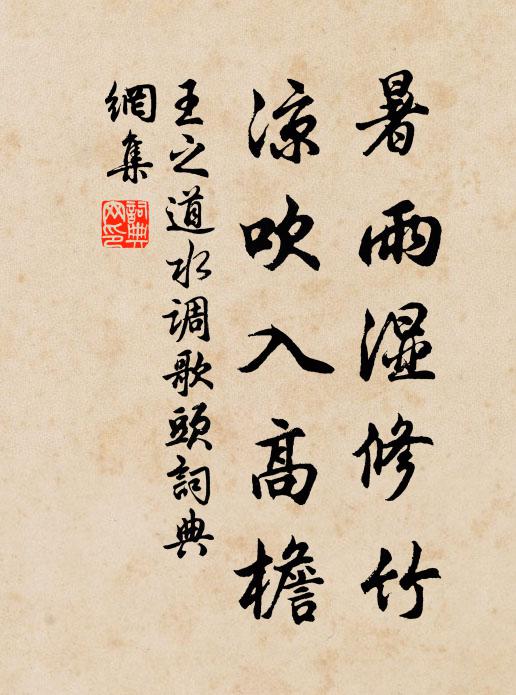 暑雨湿修竹
凉吹入高檐
王之道水调歌头词典
網集
詞典
网印